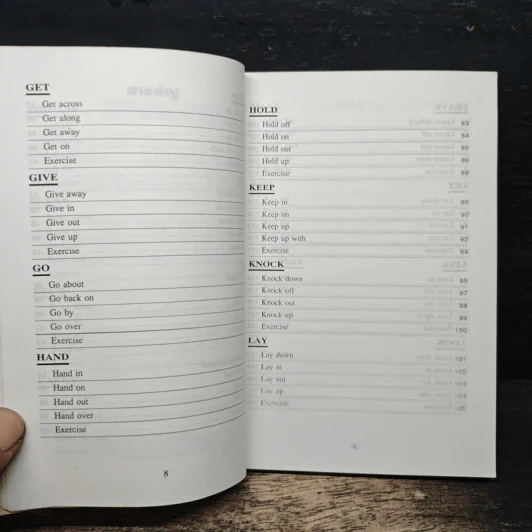 GET
Get across
Get along
Get away
Get on
Exercise
GIVE
Give away
Give in
Give out
Give up
Exercise
GO
Go about
Go back on
Go by
Go over
Exercise
HAND
Hand in
Hand on
Hand out
Hand over
Exercise
8
HOLD
Hold off 83
Hold on 84
Hold out 85
Hold up 86
Exercise 88
KEEP
Keep in 89
Keep on 90
Keep up 91
Keep up with 92
Exercise 94
KNOCK
Knock down 95
Knock off 97
Knock out 98
Knock up 99
Exercise 100
LAY
Lay down 101
Lay in 102
Lay out 103
Lay up 104
Exercise 105